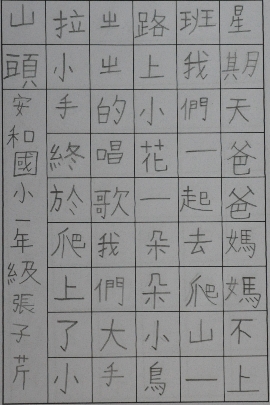 星期天爸爸媽媽不上
班我們一起去爬山一
路上小花一朵朵小鳥
㞢㞢的唱歌我們大手
拉小手終於爬上了小
山頭
安和國小一年級張子芹